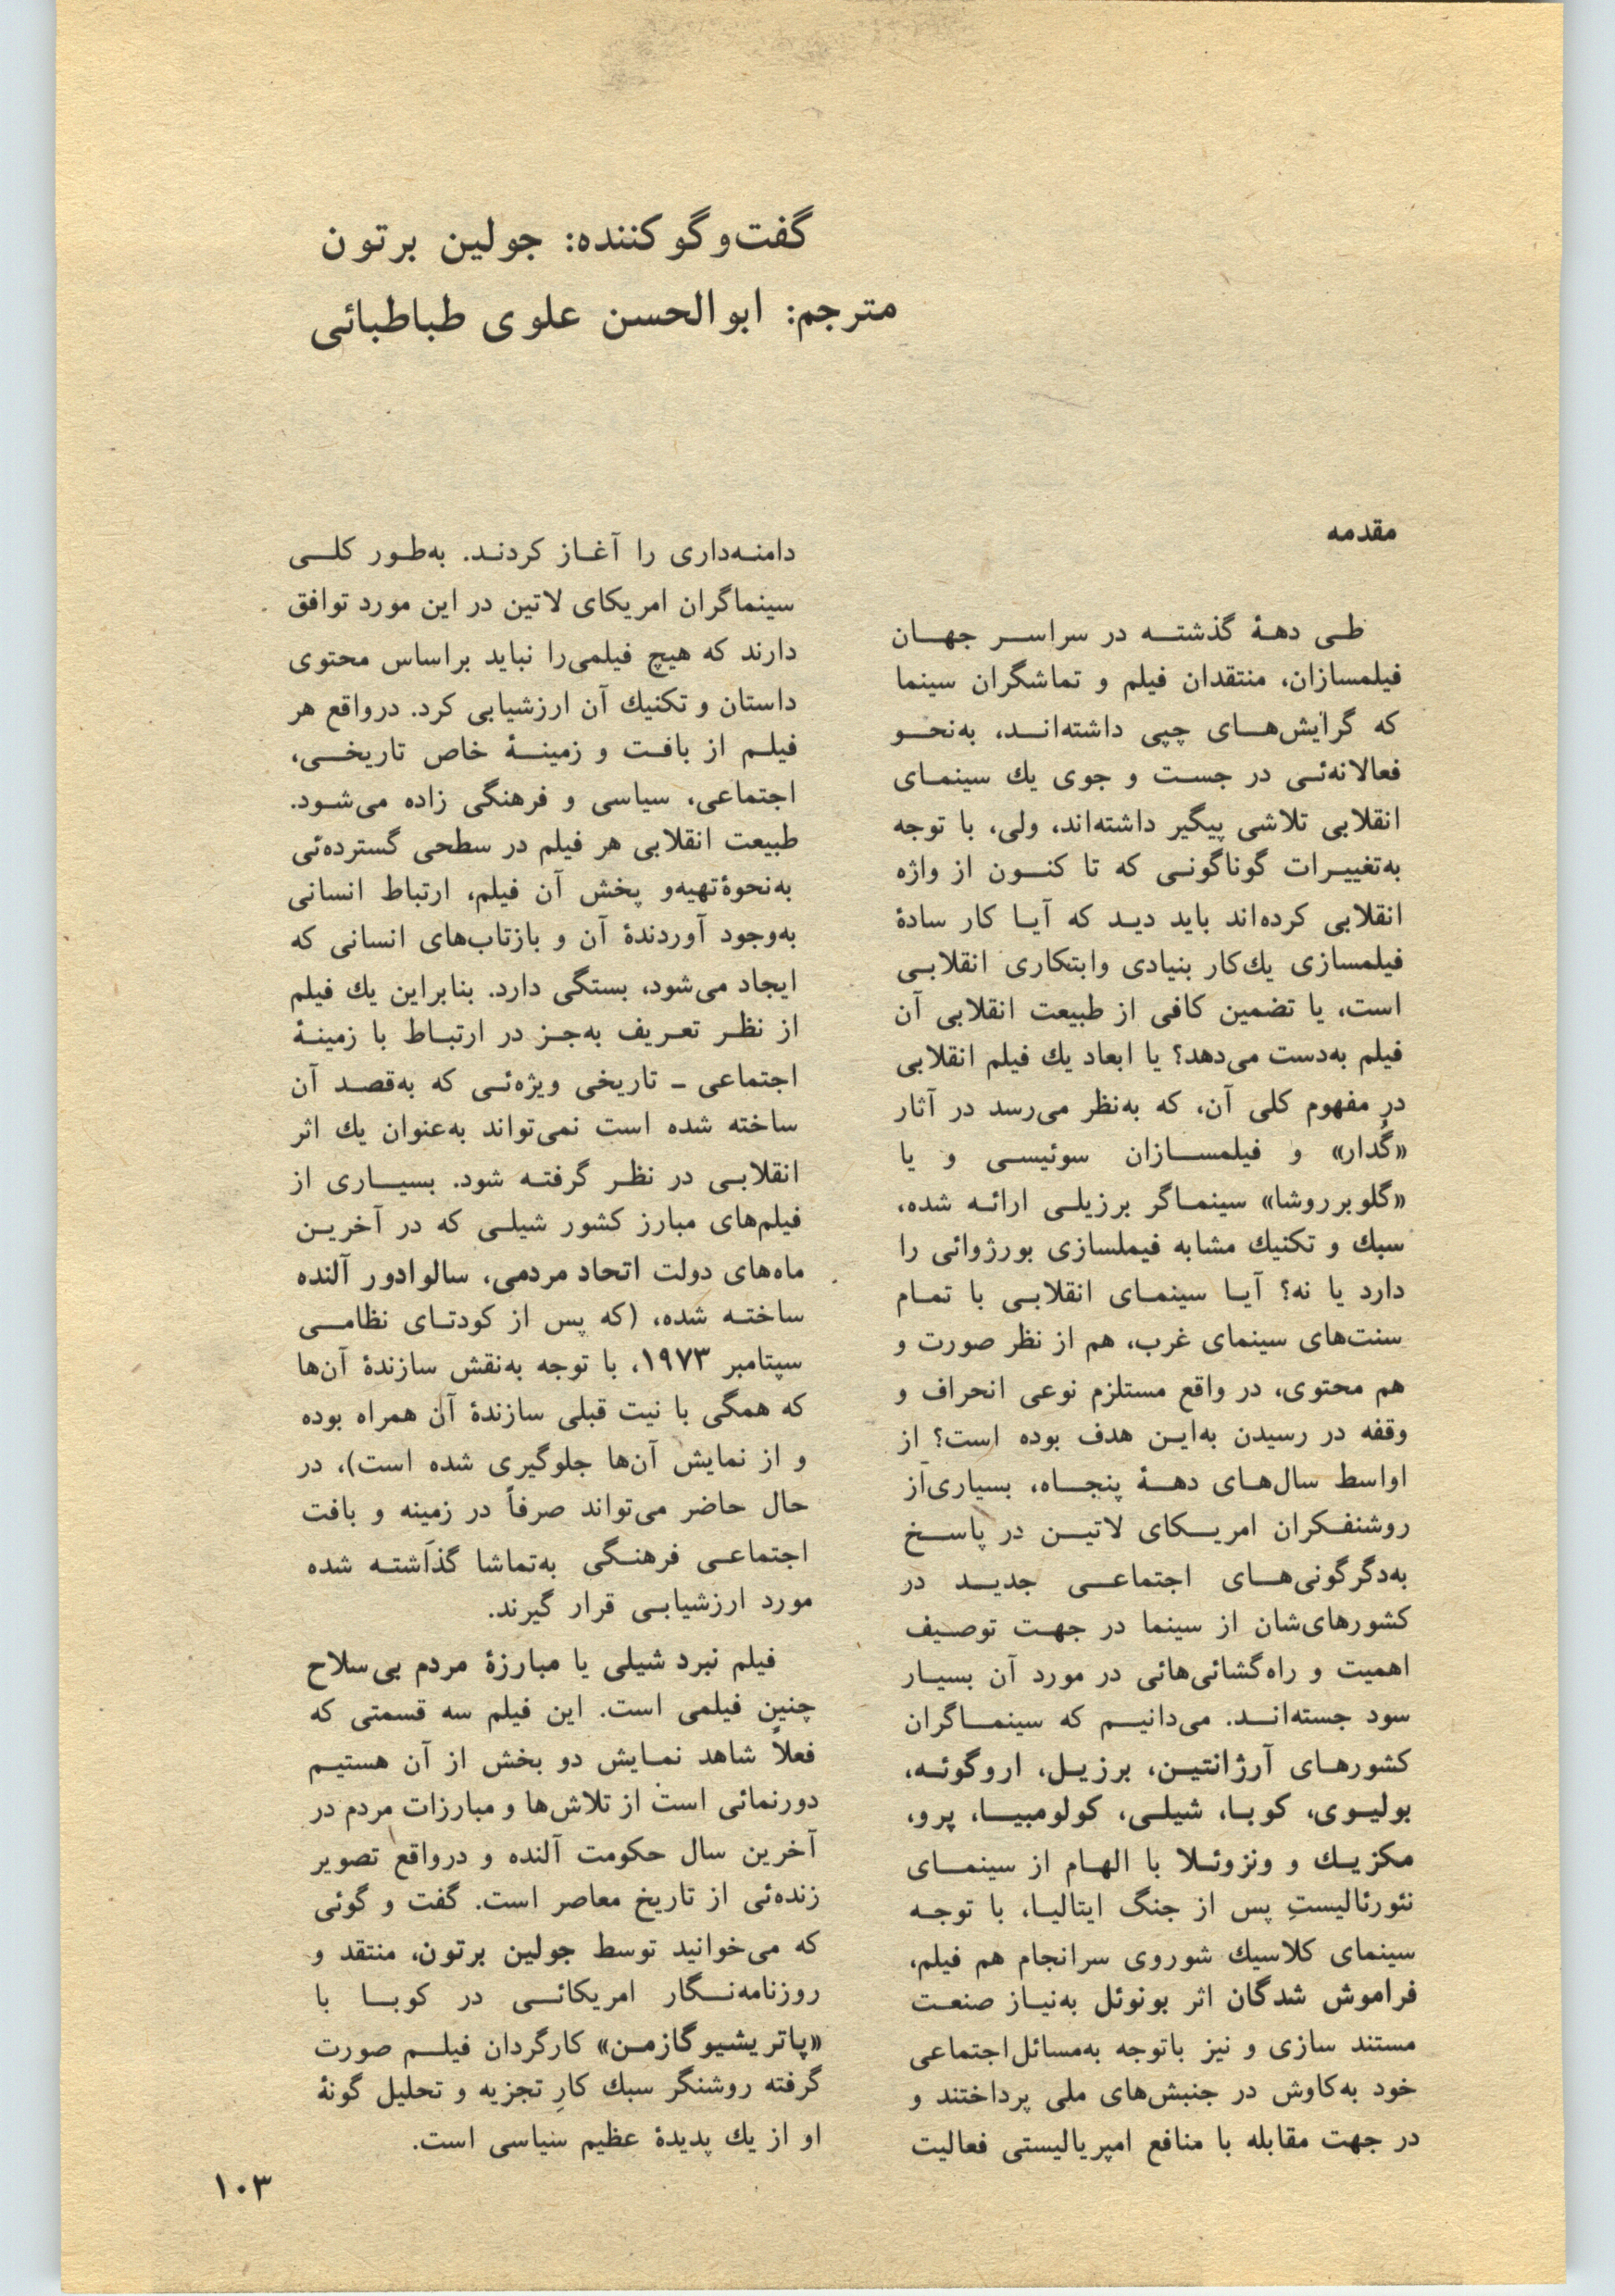 گفت‌وگو کننده: جولین برتون
مترجم: ابوالحسن علوی طباطبائی
مقدمه
طی دههٔ گذشته در سراسر جهان
فیلمسازان، منتقدان فیلم و تماشگران سینما
که گرایش‌های چپی داشته‌اند، به‌نحو
فعالانه‌ئی در جست و جوی یك سینمای
انقلابی تلاشی پیگیر داشته‌اند، ولی، با توجه
به‌تغییرات گوناگونی که تا کنون از واژه
انقلابی کرده‌اند باید دید که آیا کار سادهٔ
فیلمسازی یك‌کار بنیادی وابتکاری انقلابی
است، یا تضمین کافی از طبیعت انقلابی آن
فیلم به‌دست می‌دهد؟ یا ابعاد یك فیلم انقلابی
در مفهوم کلی آن، که به‌نظر می‌رسد در آثار
«گُدار» و فیلمسازان سوئیسی و یا
«گلوبرروشا» سینماگر برزیلی ارائه شده،
سبك و تکنیك مشابه فیملسازی بورژوائی را
دارد یا نه؟ آیا سینمای انقلابی با تمام
سنت‌های سینمای غرب، هم از نظر صورت و
هم محتوی، در واقع مستلزم نوعی انحراف و
وقفه در رسیدن به‌این هدف بوده است؟ از
اواسط سال‌های دههٔ پنجاه، بسیاری‌از
روشنفکران امریکای لاتین در پاسخ
به‌دگرگونی‌های اجتماعی جدید در
کشورهای‌شان از سینما در جهت توصیف
اهمیت و راه‌گشائی‌هائی در مورد آن بسیار
سود جسته‌اند. می‌دانیم که سینماگران
کشورهای آرژانتین، برزیل، اروگوئه،
بولیوی، کوبا، شیلی، کولومبیا، پرو،
مکزیك و ونزوئلا با الهام از سینمای
نئورئالیستِ پس از جنگ ایتالیا، با توجه
سینمای کلاسیك شوروی سرانجام هم فیلم،
فراموش شدگان اثر بونوئل به‌نیاز صنعت
مستند سازی و نیز باتوجه به‌مسائل‌اجتماعی
خود به‌کاوش در جنبش‌های ملی پرداختند و
در جهت مقابله با منافع امپریالیستی فعالیت
دامنه‌داری را آغاز کردند. به‌طور کلی
سینماگران امریکای لاتین در این مورد توافق
دارند که هیچ فیلمی‌را نباید براساس محتوی
داستان و تکنیك آن ارزشیابی کرد. درواقع هر
فیلم از بافت و زمینهٔ خاص تاریخی،
اجتماعی، سیاسی و فرهنگی زاده می‌شود.
طبیعت انقلابی هر فیلم در سطحی گسترده‌ئی
به‌نحوهٔ‌تهیه‌و پخش آن فیلم، ارتباط انسانی
به‌وجود آوردندهٔ آن و بازتاب‌های انسانی که
ایجاد می‌شود، بستگی دارد. بنابراین یك فیلم
از نظر تعریف به‌جز در ارتباط با زمینهٔ
اجتماعی ـ تاریخی ویژه‌ئی که به‌قصد آن
ساخته شده است نمی‌تواند به‌عنوان یك اثر
انقلابی در نظر گرفته شود. بسیاری از
فیلم‌های مبارز کشور شیلی که در آخرین
ماه‌های دولت اتحاد مردمی، سالوادور آلنده
ساخته شده، (که پس از کودتای نظامی
سپتامبر ۱۹۷۳، با توجه به‌نقش سازندهٔ آن‌ها
که همگی با نیت قبلی سازندهٔ آن همراه بوده
و از نمایش آن‌ها جلوگیری شده است)، در
حال حاضر می‌تواند صرفاً در زمینه و بافت
اجتماعی فرهنگی به‌تماشا گذاشته شده
مورد ارزشیابی قرار گیرند.
فیلم نبرد شیلی یا مبارزهٔ مردم بی‌سلاح
چنین فیلمی است. این فیلم سه قسمتی که
فعلاً شاهد نمایش دو بخش از آن هستیم
دورنمائی است از تلاش‌ها و مبارزات مردم در
آخرین سال حکومت آلنده و درواقع تصویر
زنده‌ئی از تاریخ معاصر است. گفت و گوئی
که می‌خوانید توسط جولین برتون، منتقد و
روزنامه‌نگار امریکائی در کوبا با
«پاتریشیو گازمن» کارگردان فیلم صورت
گرفته روشنگر سبك کارِ تجزیه و تحلیل گونهٔ
او از یك پدیدهٔ عظیم سیاسی است.
۱۰۳